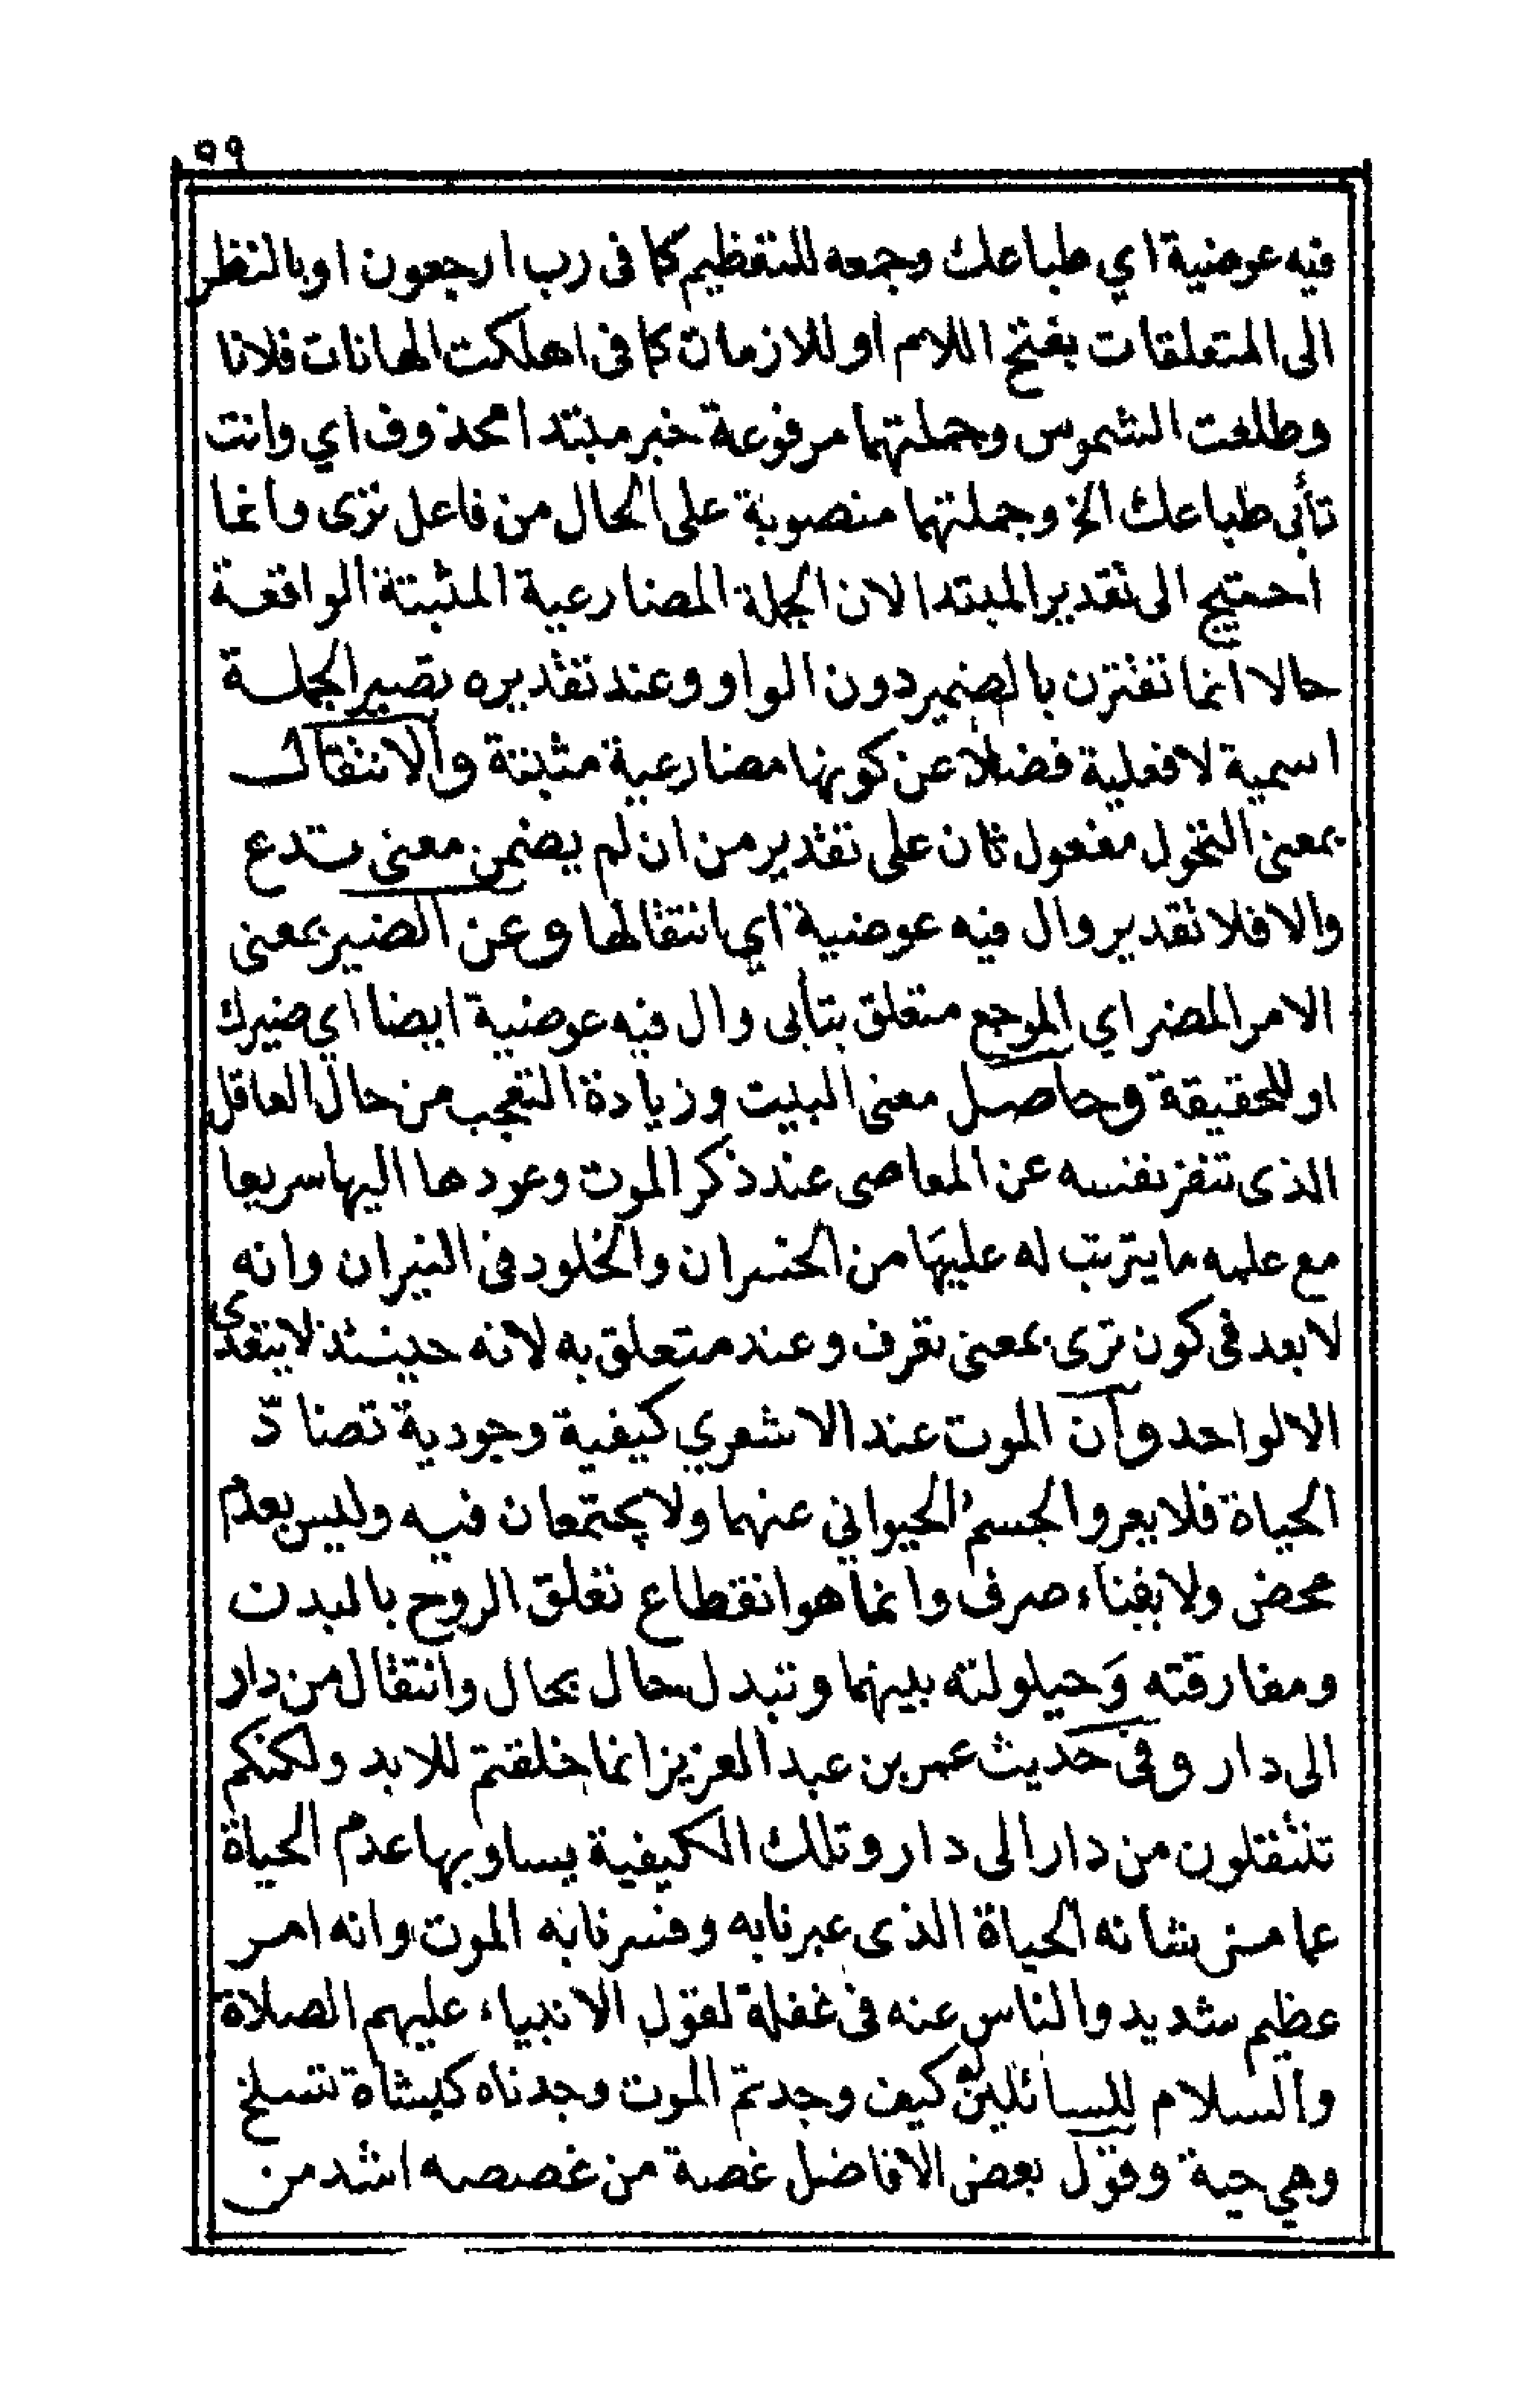 ٥٩
فيه عوضية اي طباعك وجمعه للتعظيم كما فى رب ارجعون او بالنظر
الى المتعلقات بفتح اللام او للازمان كما فى اهلكت الهانات فلانا
وطلعت الشموس وجملتهما مرفوعة خبر مبتدا محذوف اي وانت
تأبى طباعك الخ وجملتهما منصوبة على الحال من فاعل ترى وانما
احتيج الى تقدير المبتدا لان الجملة المضارعية المثبتة الواقعة
حالا انما تقترن بالضمير دون الواو وعند تقديره تصير الجملة
اسمية لا فعلية فضلا عن كونها مضارعية مثبتة والانتقال
بمعنى التحول مفعول ثان على تقدير من ان لم يضمن معنى تدع
والا فلا تقدير وال فيه عوضية اي انتقالها وعن الضمير بمعنى
الامر المضمر اي الموجع متعلق بتأبى وال فيه عوضية ايضا اي ضميرك
او للحقيقة وحاصل معنى البيت وزيادة التعجب من حال العاقل
الذى تنفر نفسه عن المعاصى عند ذكر الموت وعودها اليها سريعا
مع علمه ما يترتب له عليها من الخسران والخلود فى النيران وانه
لا بعد فى كون ترى بمعنى تعرف وعند متعلق به لانه حينئذ لا يتعدى
الا لواحد وأن الموت عند الاشعري كيفية وجودية تضادّ
الحياة فلا يعرو الجسم الحيواني عنهما ولا يجتمعان فيه وليس بعدم
محض ولا بفناء صرف وانما هو انقطاع تعلق الروح بالبدن
ومفارقته وَحيلولته بينهما وتبدل حال بحال وانتقال من دار
الى دار وفى حديث عمر بن عبد العزيز انما خلقتم للابد ولكنكم
تنتقلون من دار الى دار وتلك الكيفية يساويها عدم الحياة
عما من شانه الحياة الذى عبر نابه وفسر نابه الموت وانه امر
عظيم شديد والناس عنه فى غفلة لقول الانبياء عليهم الصلاة
والسلام للسائلين كيف وجدتم الموت وجدناه كشاة تسلخ
وهي حية وقول بعض الافاضل غصة من غصصه اشد من